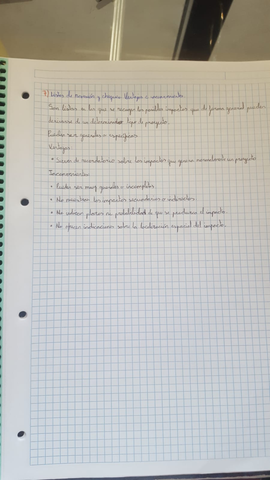 Listas de revisión y chequeo. Ventajas e inconvenientes.
Son listas en las que se recogen los posibles impactos que de forma general pueden
derivarse de un determinado tipo de proyecto.
Pueden ser generales o específicas.
Ventajas:
• Sirven de recordatorio sobre los impactos que generan normalmente un proyecto
Inconvenientes:
• Pueden ser muy generales o incompletas.
• No muestran los impactos secundarios o indirectos.
• No valoran plazos ni probabilidad de que se produzca el impacto.
• No ofrecen indicaciones sobre la localización espacial del impacto.